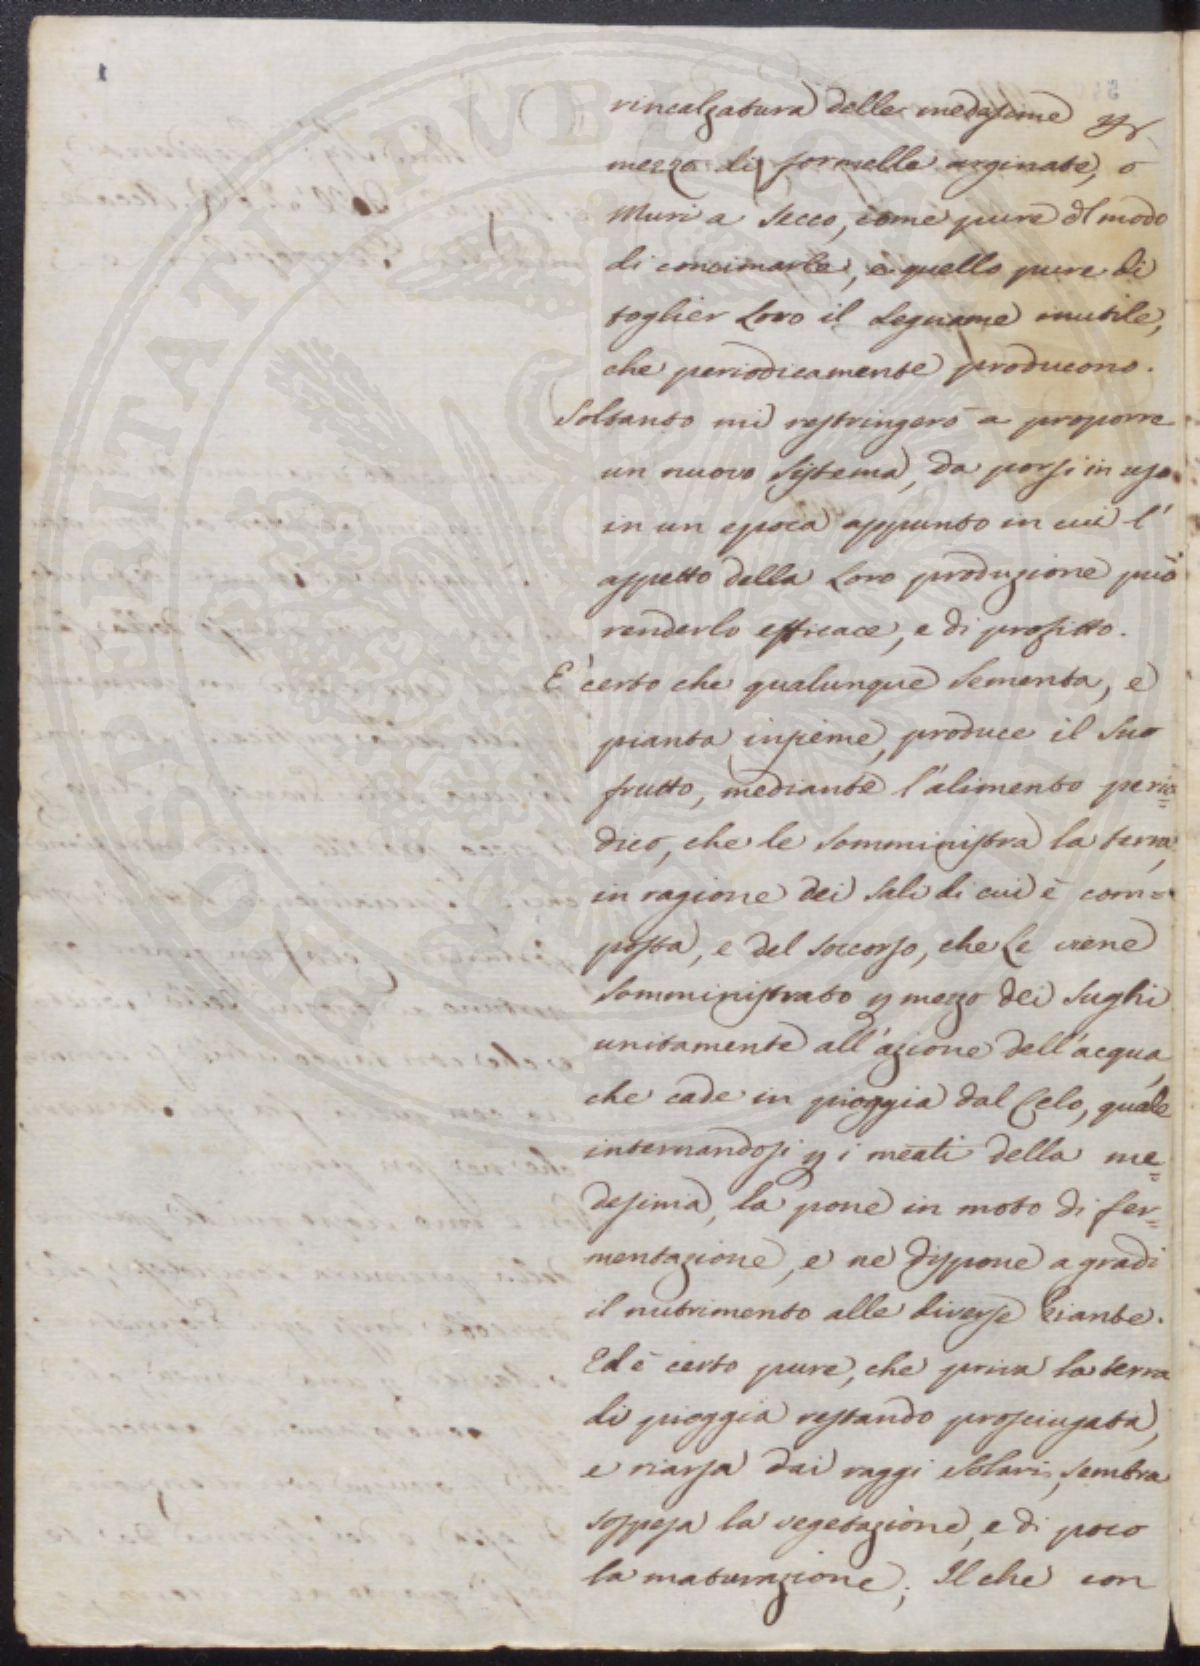 rincalzatura delle medesime p
mezzo di formelle arginate, o
Muri a secco, come pure il modo
di concimarle, e quello pure di
toglier Loro il Legname inutile,
che periodicamente producono.
Soltanto mi restringerò a proporre
un nuovo Sistema, da porsi in uso
in un epoca appunto in cui l'
aspetto della Loro produzione può
renderlo efficace, e di profitto.
E' certo che qualunque Sementa, e
pianta insieme, produce il Suo
frutto, mediante l'alimento perio=
dico, che le Somministra la terra,
in ragione dei Sali di cui è com=
posta, e del soccorso, che Le viene
Somministrato p mezzo dei Sughi
unitamente all'azione dell'acqua,
che cade in pioggia dal Celo, quale
internandosi p i meati della me=
desima, la pone in moto di fer=
mentazione, e ne dispone a gradi
il nutrimento alle diverse Piante.
Ed è certo pure, che priva la terra
di pioggia restando prosciugata,
e riarsa dai raggi Solari, sembra
sospesa la vegetazione, e di poco
la maturazione; Il che con